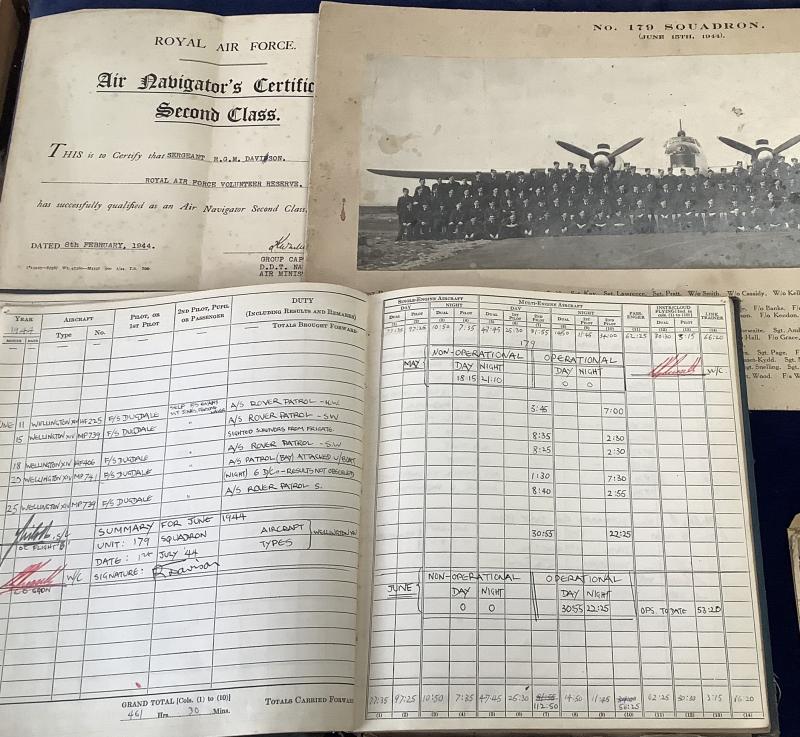 ROYAL AIR FORCE.
Air Navigator's Certific
Second Class.
THIS is to Certify that SERGEANT R.G.M. DAVISON.
ROYAL AIR FORCE VOLUNTEER RESERVE.
has successfully qualified as an Air Navigator Second Class
DATED 8th FEBRUARY, 1944.
GROUP CAP
D.D.T. NA
AIR MINIS
No. 179 SQUADRON.
(JUNE 15TH, 1944).
Sgt. Lawrence. Sgt. Patt. W/o Smith. W/o Cassidy. W/o Kell
F/o Banks.
F/o Kendon.
Sgt. And
Hall. F/o Grace,
Sgt. Page.
Sgt. Snelling.
Wood. F/o W
YEAR AIRCRAFT PILOT, OR 1ST PILOT 2ND PILOT, PUPIL OR PASSENGER DUTY (INCLUDING RESULTS AND REMARKS)
1944 Type No. TOTALS BROUGHT FORWARD
MONTH DATE
JUNE 11 WELLINGTON XIV HF225 F/S DUGDALE A/S ROVER PATROL - N.W.
15 WELLINGTON XIV MP739 F/S DUGDALE " A/S ROVER PATROL - S.W
SIGHTED SURVIVORS FROM FRIGATE.
18 WELLINGTON XIV HF406 F/S DUGDALE " A/S ROVER PATROL - S.W
20 WELLINGTON XIV MP741 F/S DUGDALE " A/S PATROL (BAY) ATTACKED U/BOAT
(NIGHT) 6 D/C - RESULTS NOT OBSERVED
25 WELLINGTON XIV MP739 F/S DUGDALE " A/S ROVER PATROL S.
S/L
OC FLIGHT 'B'
W/C
SUMMARY FOR JUNE 1944
UNIT: 179 SQUADRON
DATE: 1st JULY '44
SIGNATURE: R Davison
AIRCRAFT TYPES } WELLINGTON XIV
GRAND TOTAL [Cols. (1) to (10)]
461 Hrs. 30 Mins.
TOTALS CARRIED FORWARD
SINGLE-ENGINE AIRCRAFT MULTI-ENGINE AIRCRAFT PASSENGER INSTR/CLOUD FLYING [Incl. in cols. (1) to (10)] LINK TRAINER
DAY NIGHT DAY NIGHT
DUAL PILOT DUAL PILOT DUAL 1ST PILOT 2ND PILOT DUAL 1ST PILOT 2ND PILOT DUAL PILOT
(1) (2) (3) (4) (5) (6) (7) (8) (9) (10) (11) (12) (13) (14)
77:35 97:25 10:50 7:35 47:45 25:30 81:55 14:50 11:45 34:00 62:25 30:30 3:15 66:20
179
MAY NON-OPERATIONAL OPERATIONAL
DAY NIGHT DAY NIGHT
18:15 21:10 0 0
W/C
3:45 7:00
8:35 2:30
8:25 2:30
1:30 7:30
8:40 2:55
30:55 22:25
JUNE NON-OPERATIONAL OPERATIONAL
DAY NIGHT DAY NIGHT
0 0 30:55 22:25 OPS. TO DATE 53:20
77:35 97:25 10:50 7:35 47:45 25:30 81:55 14:50 11:45 34:00 62:25 30:30 3:15 66:20
112:50 56:25
(1) (2) (3) (4) (5) (6) (7) (8) (9) (10) (11) (12) (13) (14)